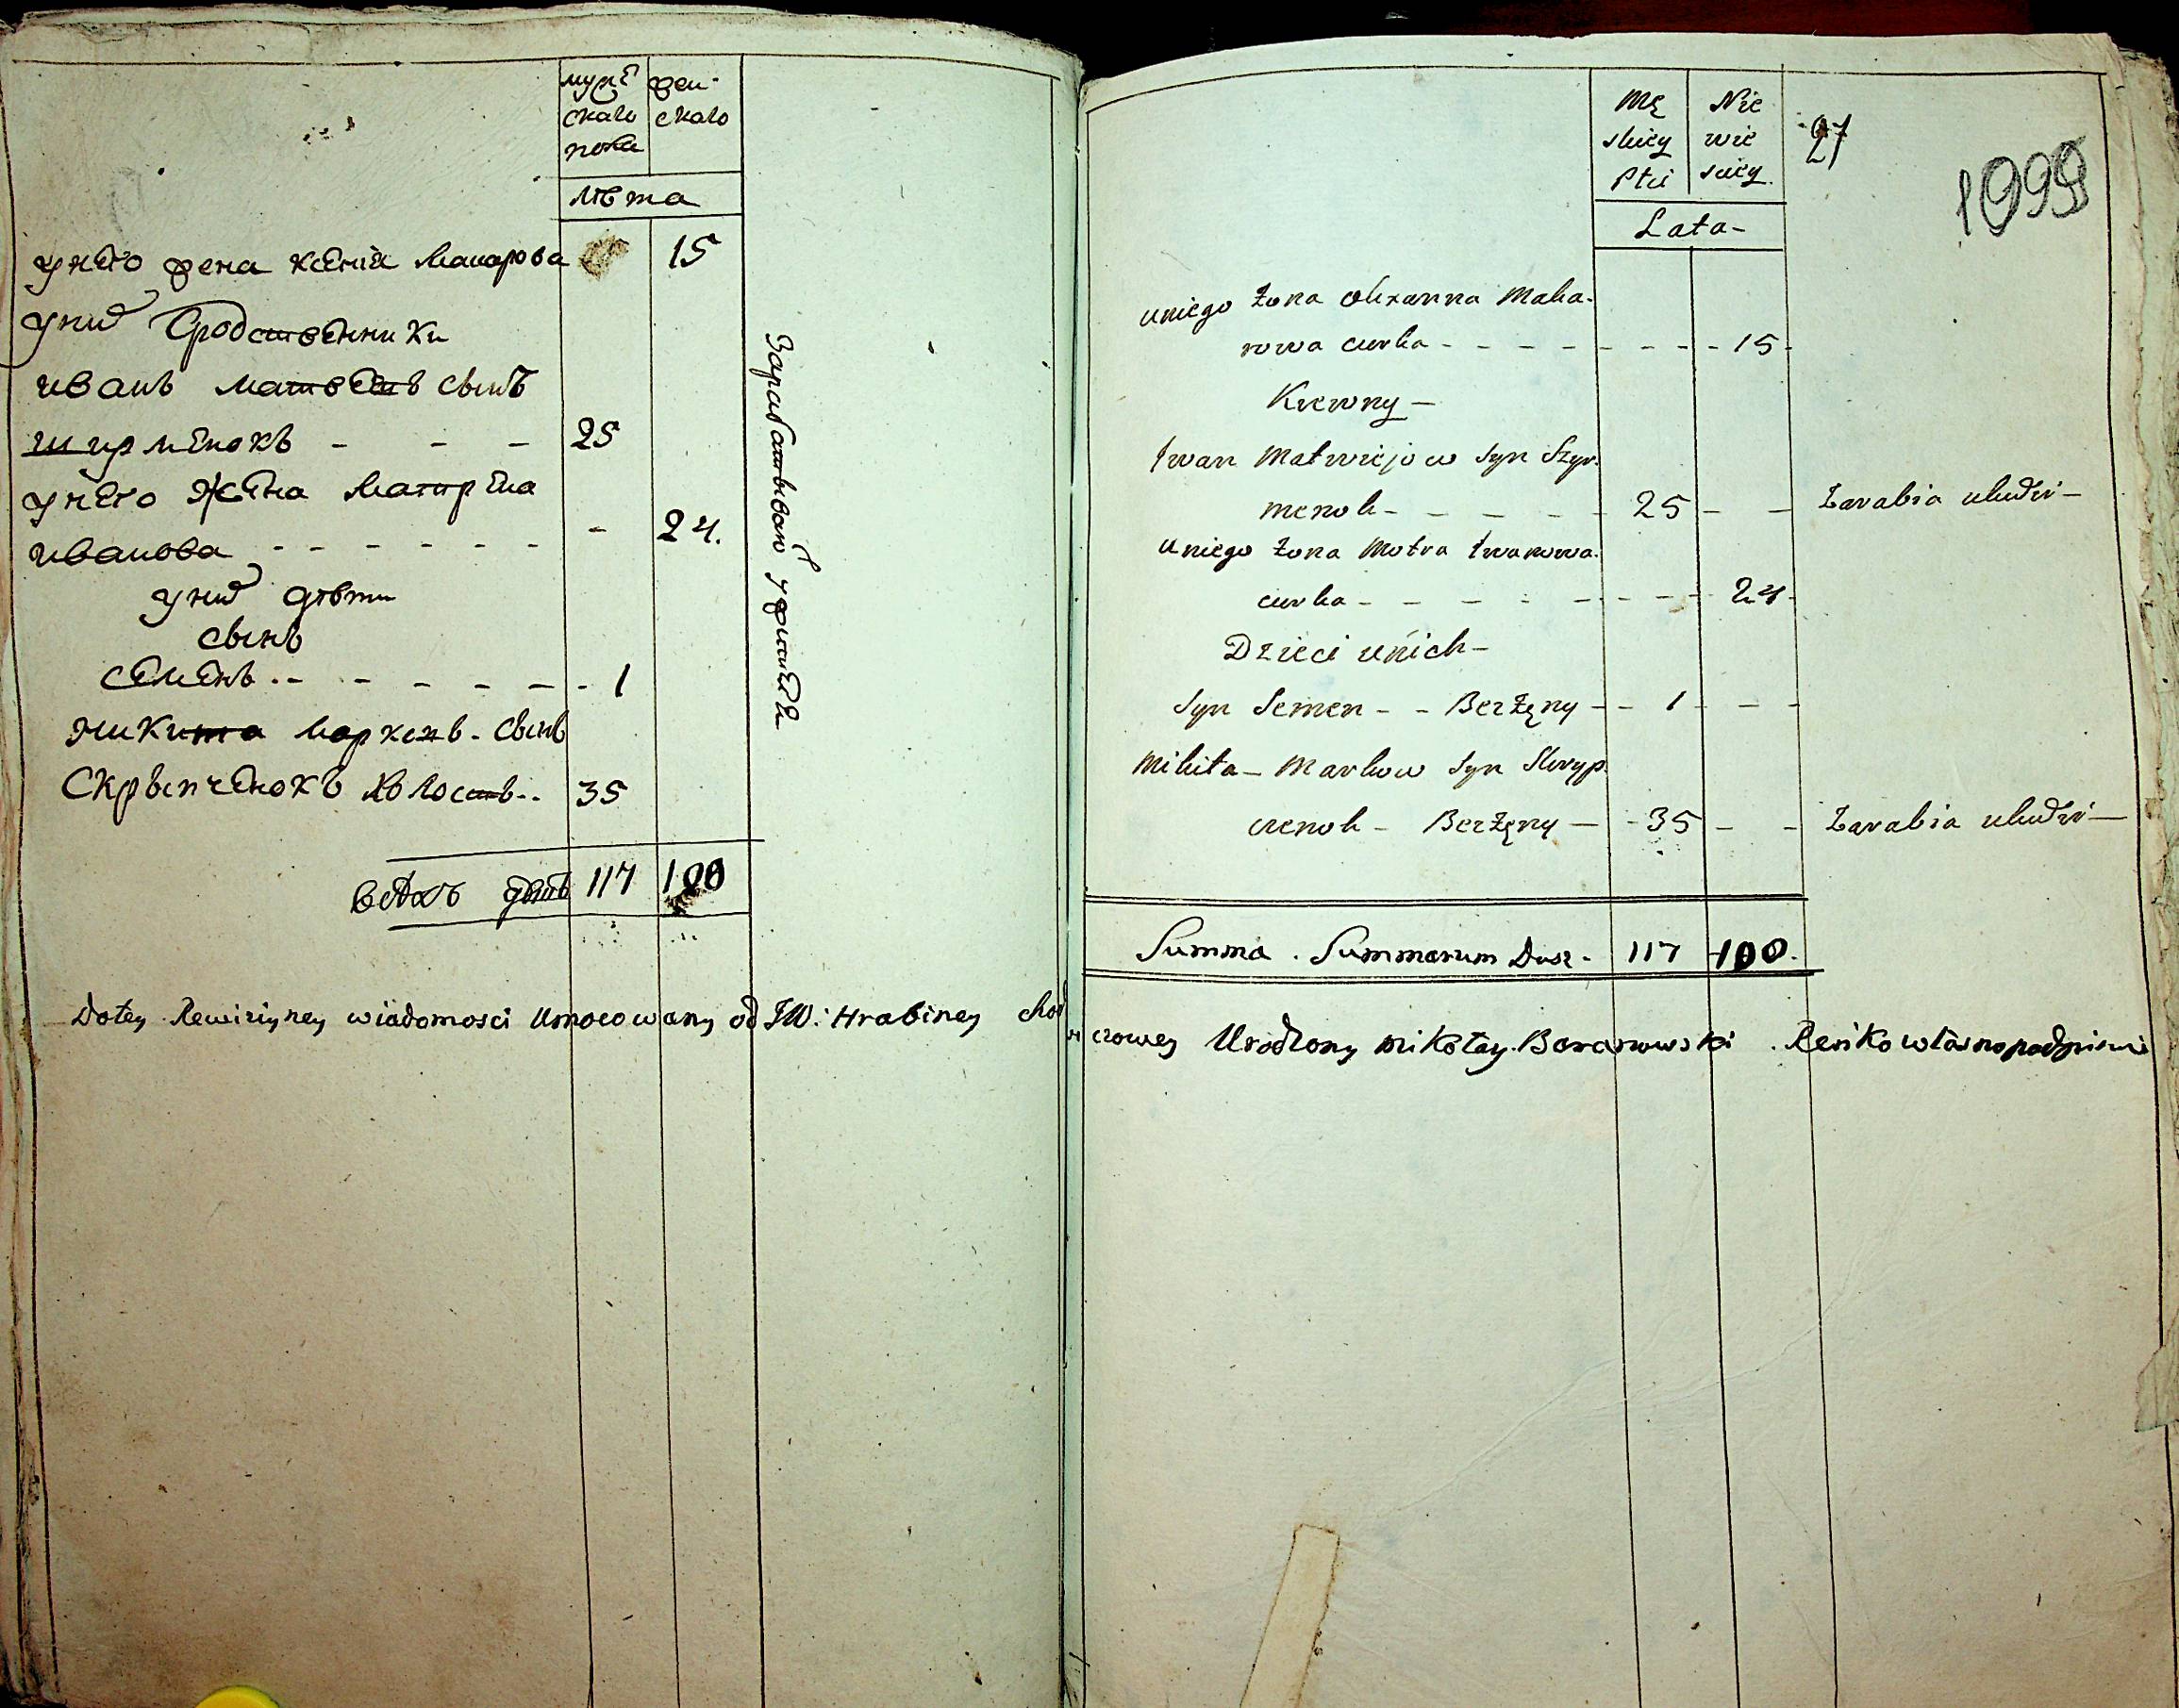 мужескаго пола
женскаго
лѣта
у него жена Ксения Макарова 15
у них сродственники
иванъ матвеевъ сынъ
ширменокъ - - - 25
у него жена матрена
иванова - - - - - - - 24.
у них дѣти
сынъ
семенъ - - - - - - 1
никита марковъ сынъ
скрыпченокъ холостъ - - 35
всѣхъ душъ 117 100
Зарабатываютъ у людей
Mę skiey Płci
Nie wie sciey
Lata -
27
1099
u niego żona Oxanna Maka-
rowa curka - - - - - - - - 15 -
Krewny -
Iwan Matwiejow syn Szyr-
menok - - - - - 25 - - Zarabia u ludzi -
u niego żona Motra Iwanowa
curka - - - - - - - 24 -
Dzieci u nich -
Syn Semen - - Bezżęny - - 1 - - -
Mikita - Markow syn Skryp-
czenok - Bezżęny - - 35 - - Zarabia u ludzi -
Summa . Summarum Dusz - 117 100.
Do tey Rewizÿney wiadomosci Umocowany od JW: Hrabiney Chod
czowey Urodzony Mikołay Baranowski . Ręnko własno podpisuie